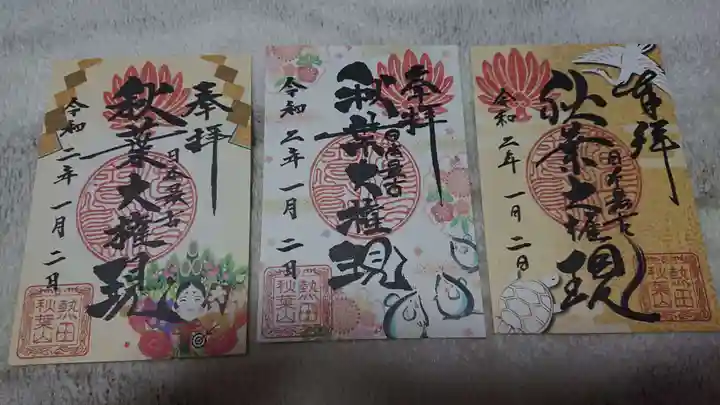 奉拝
日本最古
秋葉大権現
令和二年一月二日
熱田
秋葉山
奉拝
日本最古
秋葉大権現
令和二年一月二日
熱田
秋葉山
奉拝
日本最古
秋葉大権現
令和二年一月二日
熱田
秋葉山